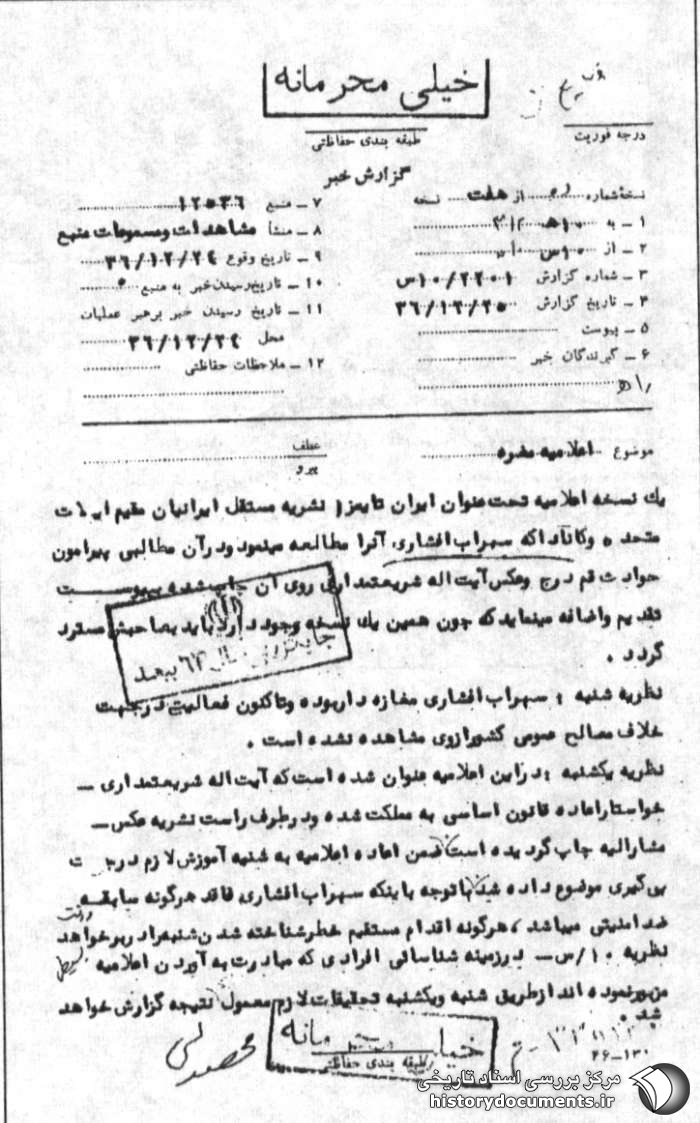 خیلی محرمانه
طبقه بندی حفاظتی
درجه فوریت
گزارش خبر
نسخهٔ شماره از هفت نسخه
۱ – به ۱۰ه ۳۱۲
۲ – از ۱۰س
۳ – شماره گزارش ۱۰/۲۲۰۱س
۴ – تاریخ گزارش ۳۶/۱۲/۲۵
۵ – پیوست
۶ – گیرندگان خبر
۷ – منبع ۱۲۵۳۶
۸ – منشأ مشاهدات ومسموعات منبع
۹ – تاریخ وقوع ۳۶/۱۲/۲۴
۱۰ – تاریخ رسیدن خبر به منبع
۱۱ – تاریخ رسیدن خبر برهبر عملیات
محل ۳۶/۱۲/۲۴
۱۲ – ملاحظات حفاظتی
موضوع اعلامیه مضره
عطف
پیرو
یک نسخه اعلامیه تحت عنوان ایران تایمز نشریه مستقل ایرانیان مقیم ایالات
متحده وکانادا که سهراب افشاری آنرا مطالعه مینمود ودرآن مطالبی پیرامون
حوادث قم درج وعکس آیت اله شریعتمداری روی آن چاپ شده بپیوست
تقدیم واضافه مینماید که چون همین یک نسخه وجود دارد باید بصاحبش مسترد
گردد .
نظریه شنبه : سهراب افشاری مغازه دار بوده وتاکنون فعالیتی درجهت
خلاف مصالح عمومی کشور ازوی مشاهده نشده است .
نظریه یکشنبه : دراین اعلامیه عنوان شده است که آیت اله شریعتمداری –
خواستار اعاده قانون اساسی به مملکت شده ودر طرف راست نشریه عکس –
مشارالیه چاپ گردیده است ضمن اعاده اعلامیه به شنبه آموزش لازم درجهت
پی گیری موضوع داده شد با توجه باینکه سهراب افشاری فاقد هرگونه سابقه
ضد امنیتی میباشد ، هرگونه اقدام مستقیم خطر شناخته شدن شنبه را دربر خواهد داشت
نظریه ۱۰/س – درزمینه شناسائی افرادی که مبادرت به آوردن اعلامیه
مزبور نموده اند از طریق شنبه ویکشنبه تحقیقات لازم معمول نتیجه گزارش خواهد
شد .
خیلی محرمانه
طبقه بندی حفاظتی
مرکز بررسی اسناد تاریخی
historydocuments.ir